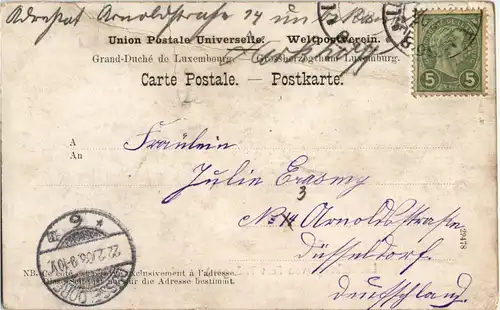 Adressat Arnoldstrasse 14 unbekannt
Union Postale Universelle. Weltpostverein.
Grand-Duché de Luxembourg. Grossherzogthum Luxemburg.
Carte Postale. — Postkarte.
5 5
A
An
Fräulein
Julie Erasmy
3
No 14 Arnoldstraße
Düsseldorf
Deutschland.
129478
22.2.06.9-10V.
NB. Ce côté est exclusivement à l'adresse.
Diese Seite ist nur für die Adresse bestimmt.